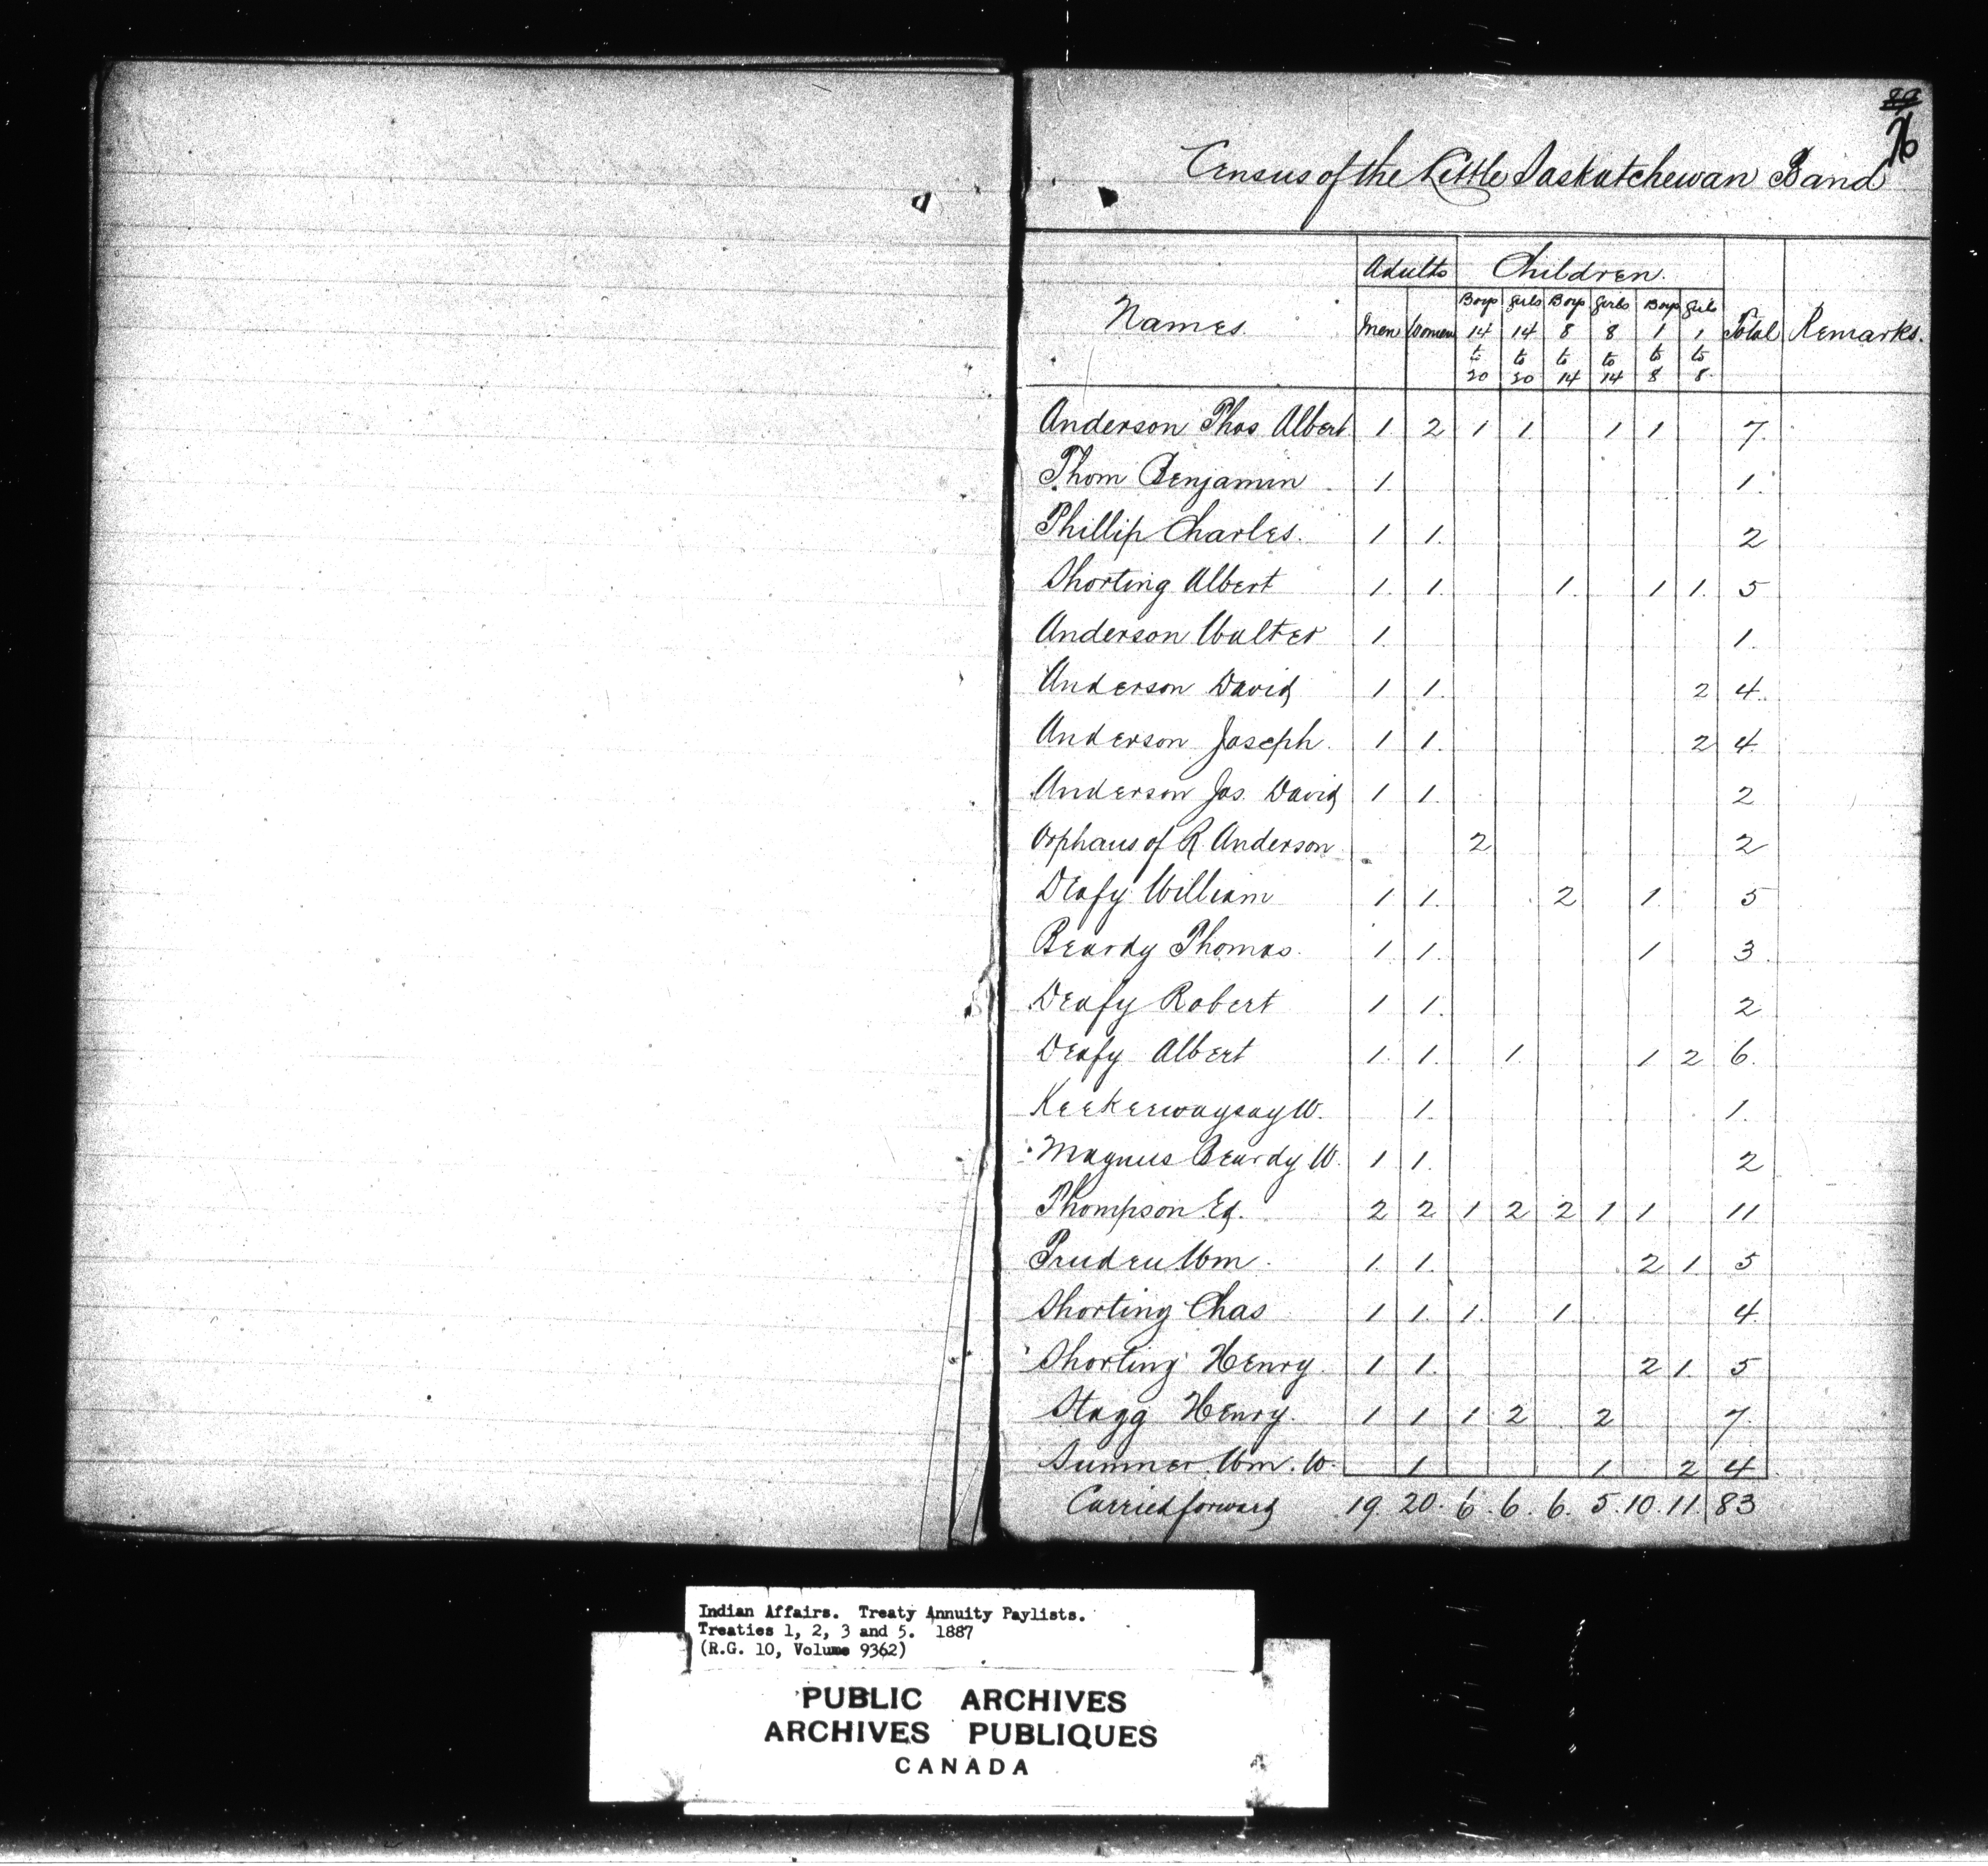 89
76
Census of the Little Saskatchewan Band
Names. Adults Children. Total Remarks.
Men Women Boys 14 to 20 Girls 14 to 20 Boys 8 to 14 Girls 8 to 14 Boys 1 to 8 Girls 1 to 8
Anderson Thos Albert 1 2 1 1 1 1 7
Thom Benjamin 1 1
Phillip Charles. 1 1 2
Shorting Albert 1 1 1 1 1 5
Anderson Walter 1 1
Anderson David 1 1 2 4
Anderson Joseph. 1 1 2 4
Anderson Jas. David 1 1 2
Orphans of R. Anderson 2 2
Deafy William 1 1 2 1 5
Beardy Thomas. 1 1 1 3
Deafy Robert 1 1 2
Deafy Albert 1 1 1 1 2 6
Keekeewaysay W. 1 1
Magnus Beardy W. 1 1 2
Thompson Ed. 2 2 1 2 2 1 1 11
Pruden Wm. 1 1 2 1 5
Shorting Chas 1 1 1 1 4
Shorting Henry. 1 1 2 1 5
Stagg Henry. 1 1 1 2 2 7
Sumner Wm. W. 1 1 2 4
Carried forward 19. 20. 6. 6. 6. 5. 10. 11. 83
Indian Affairs. Treaty Annuity Paylists.
Treaties 1, 2, 3 and 5. 1887
(R.G. 10, Volume 9362)
PUBLIC ARCHIVES
ARCHIVES PUBLIQUES
CANADA